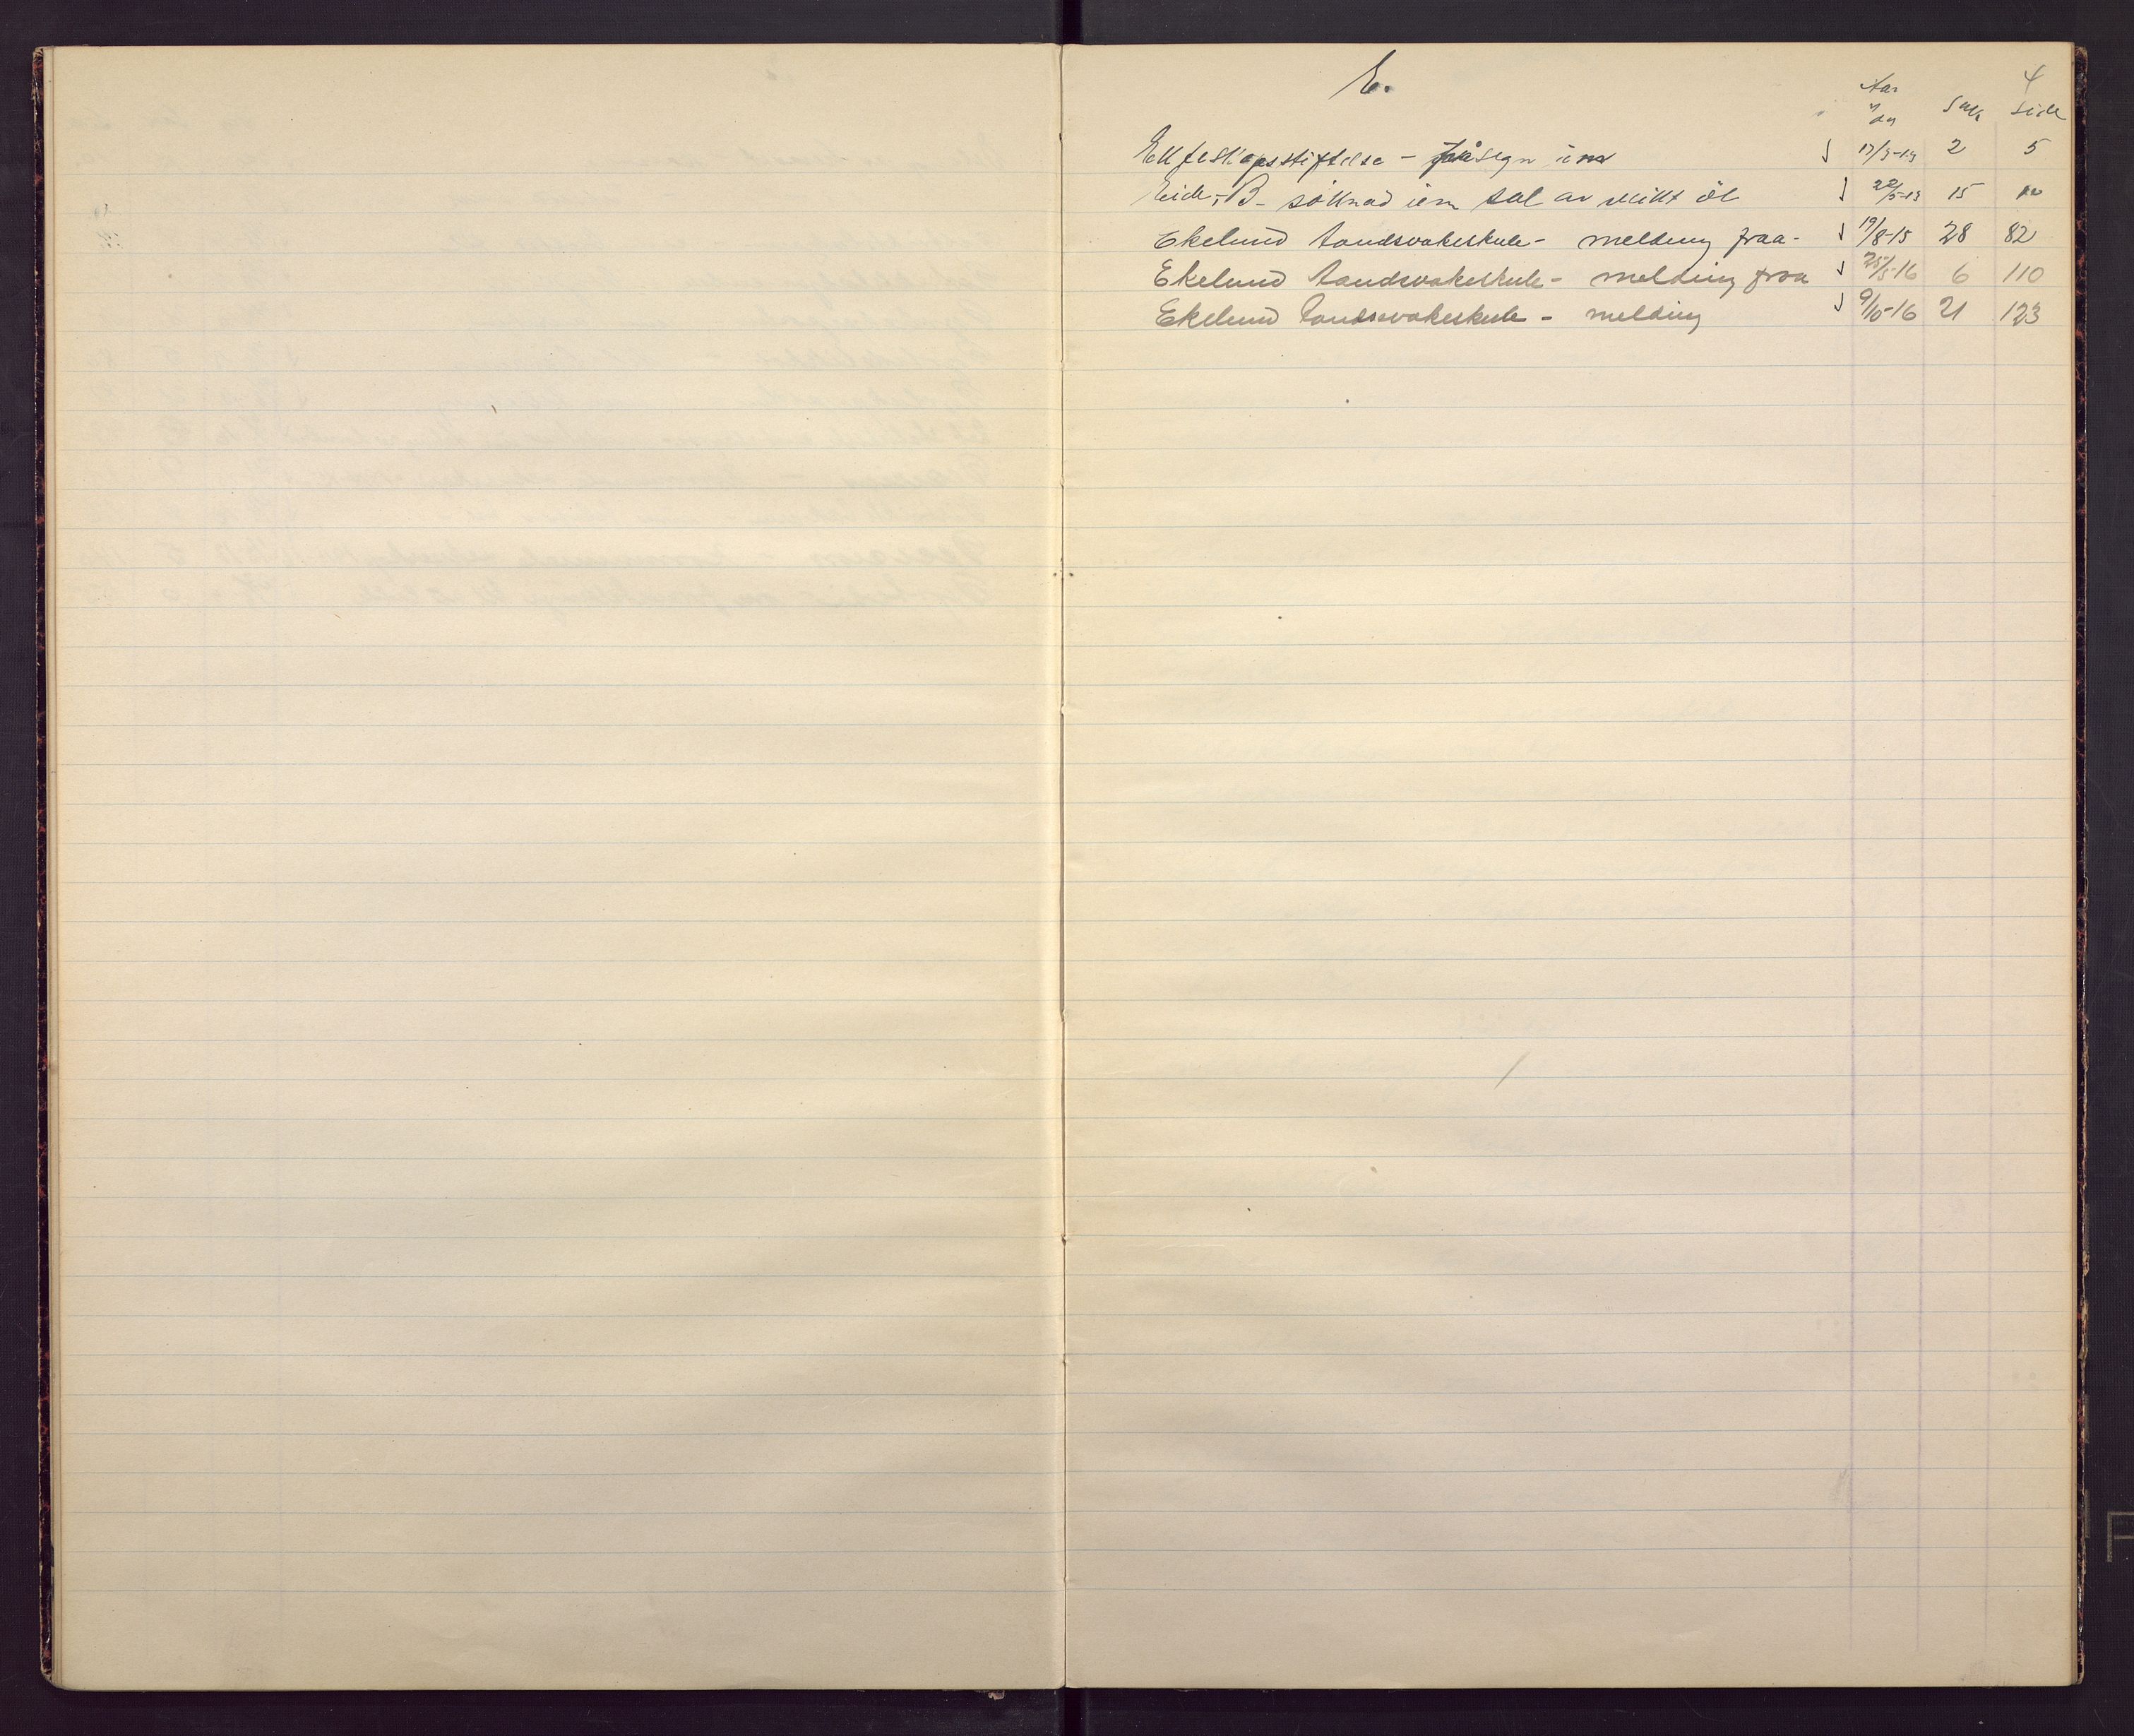 E.
4
Aar
og
dag Sak Side
Ektesk'apsstiftelse - fråsegn um J 17/3-13 2 5
Eide, B- söknad um sal av veikt öl J 22/5-13 15
Ekelund landsvakeskule - melding fraa - J 19/8-15 28 82
Ekelund landsvakeskule - melding fraa J 25/5-16 6 110
Ekelund landsvakeskule - melding J 9/10-16 21 123